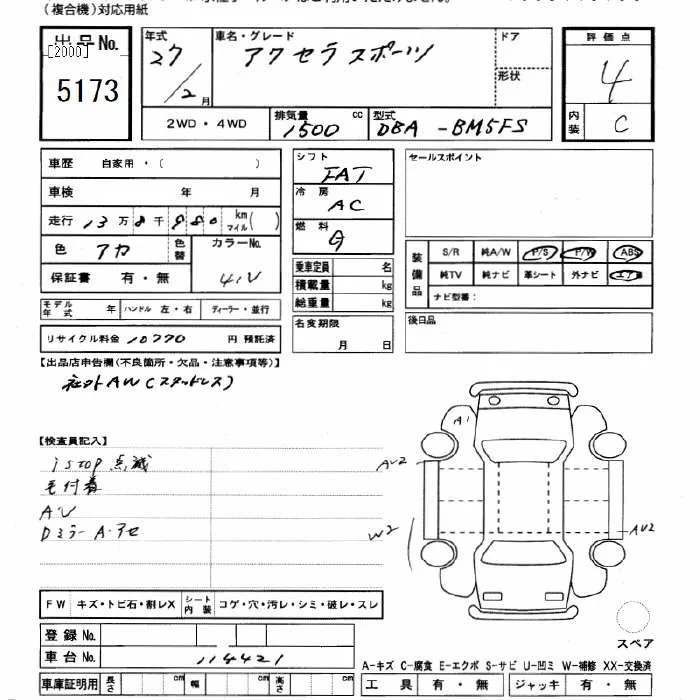 (複合機)対応用紙
出品No.
[2000]
5173
年式 27/2月
車名・グレード アクセラスポーツ
ドア
形状
評価点 4
内装 C
2WD・4WD
排気量 1500 cc
型式 DBA-BM5FS
車歴 自家用・( )
車検 年 月
走行 13万8千980 km マイル( )
色 アカ 色替 カラーNo. 41V
保証書 有・無
モデル年式 年 ハンドル 左・右 ディーラー・並行
リサイクル料金 10770 円 預託済
シフト FAT
冷房 AC
燃料 G
乗車定員 名
積載量 kg
総重量 kg
名変期限 月 日
セールスポイント
装備品
S/R 純A/W P/S P/W ABS
純TV 純ナビ 革シート 外ナビ エアB
ナビ型番:
後日品
【出品店申告欄(不良箇所・欠品・注意事項等)】
社外AW(スタッドレス)
【検査員記入】
iStop 点滅
毛付着
AU
Dミラー A・アセ
A1
AU2
W2
AU2
スペア
FW キズ・トビ石・割レX シート内装 コゲ・穴・汚レ・シミ・破レ・スレ
登録No.
車台No. 114421
車庫証明用 長さ cm 幅 cm 高さ cm
A-キズ C-腐食 E-エクボ S-サビ U-凹ミ W-補修 XX-交換済
工具 有・無 ジャッキ 有・無